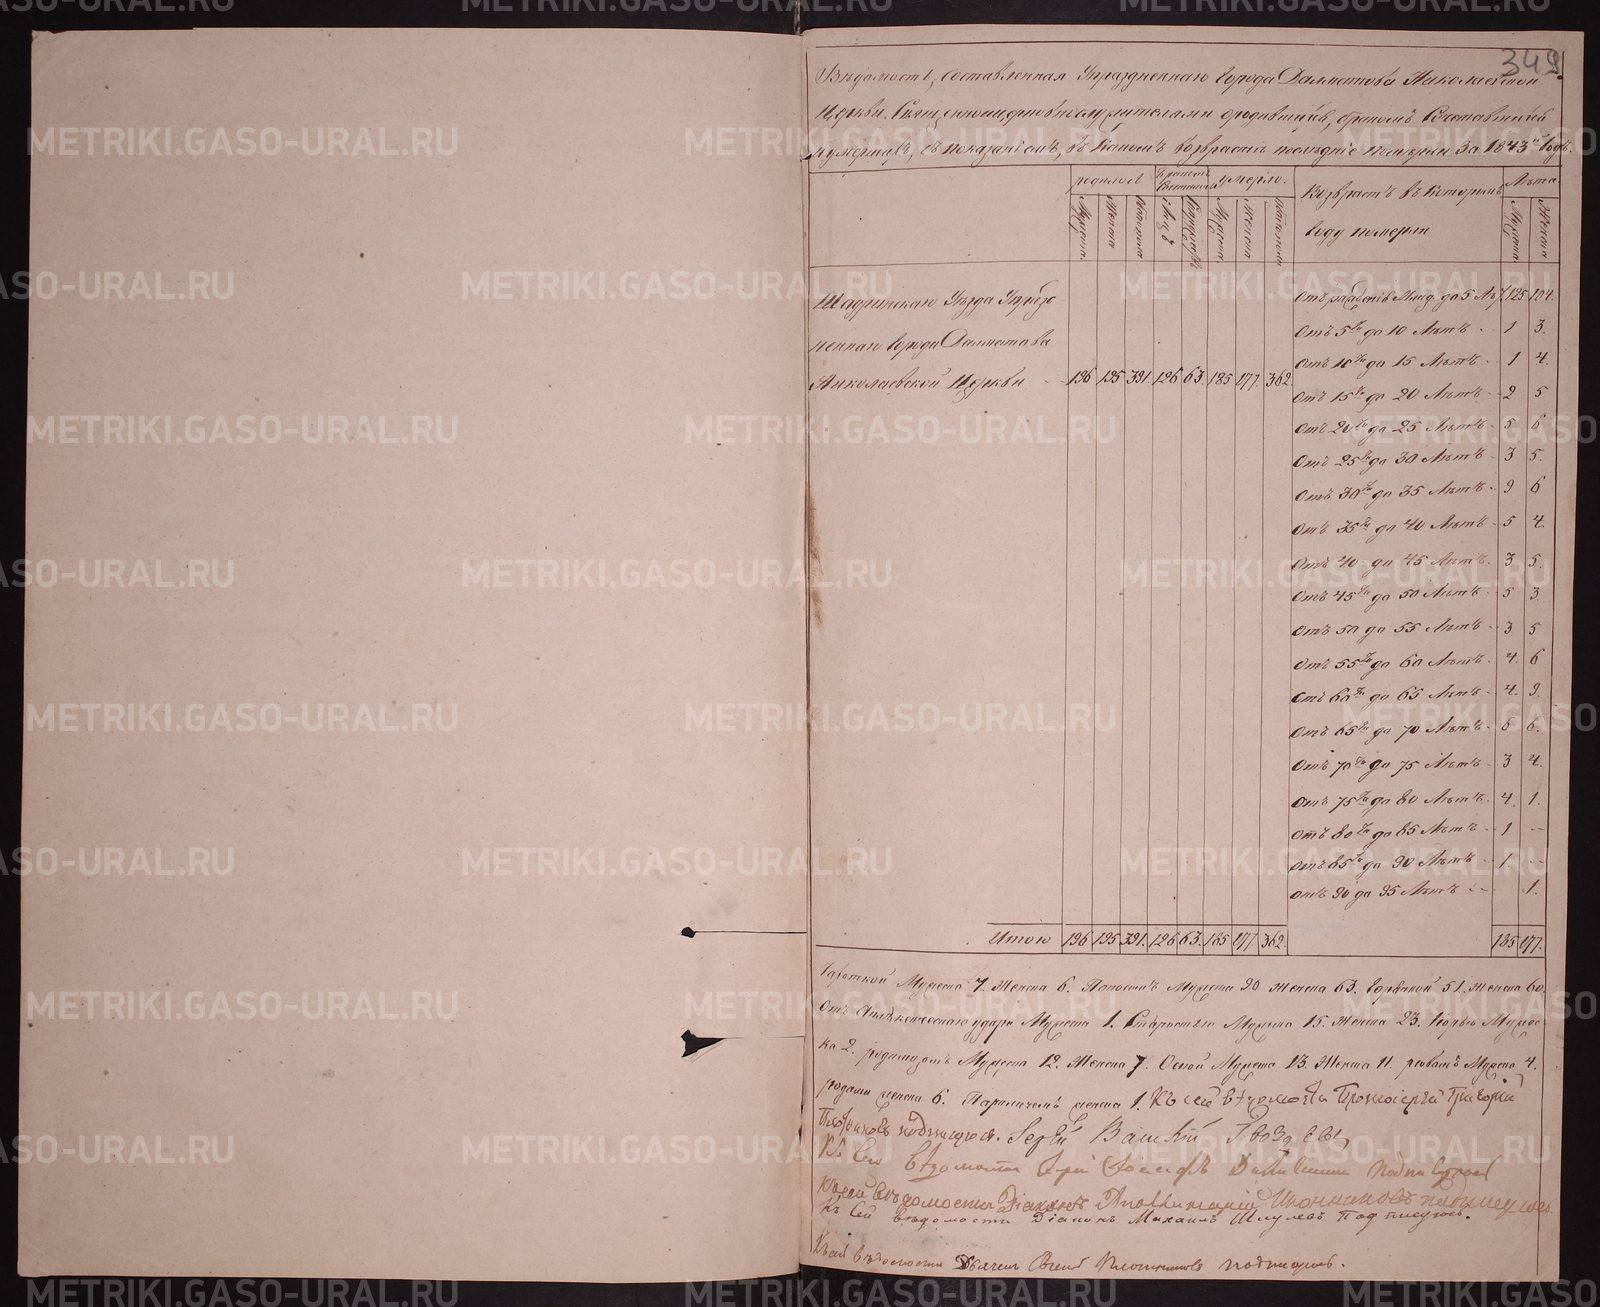 349
Вѣдомость, составленная Упраздненнаго Города Далматова Николаевской
Церкви Священноцерковнослужителями о родившихся, бракомъ сочетавшихся
и умершихъ, съ показаніемъ, въ какомъ возрастѣ послѣдніе померли за 1843й Годъ.
родилось
Бракомъ сочеталось
умерло.
Возрастъ въ которомъ году померли
Лѣта.
Мужеска.
Женска
Обоего пола
Мужеска.
Женска
Обоего пола
Мужеска.
Женска
Шадринскаго Уѣзда Упразд
неннаго города Далматова
Николаевской Церкви 196 195 391. 126 63. 185 177. 362.
Отъ рожденія до 5 Лѣтъ 125 104.
Отъ 5ти до 10 Лѣтъ 1 3.
Отъ 10ти до 15 Лѣтъ 1 4.
Отъ 15ти до 20 Лѣтъ 2 5
Отъ 20ти до 25 Лѣтъ 5 6
Отъ 25ти до 30 Лѣтъ 3 5.
Отъ 30ти до 35 Лѣтъ 9 6
Отъ 35ти до 40 Лѣтъ 5 4.
Отъ 40 до 45 Лѣтъ 3 5.
Отъ 45ти до 50 Лѣтъ 5 3.
Отъ 50 до 55 Лѣтъ 3 5
Отъ 55ти до 60 Лѣтъ 4. 6
Отъ 60ти до 65 Лѣтъ 4. 9.
Отъ 65ти до 70 Лѣтъ 6 6.
Отъ 70ти до 75 Лѣтъ 3 4.
Отъ 75ти до 80 Лѣтъ 4. 1.
Отъ 80ти до 85 Лѣтъ 1 --
Отъ 85ти до 90 Лѣтъ 1. --
Отъ 90 до 95 Лѣтъ -- 1.
Итого 196 195 391. 126 63. 185 177 362. 185 177.
Чахоткой Мужеска 7. Женска 6. Поносомъ Мужеска 90 Женска 63. Горячкой 51. Женска 60.
Отъ Апоплексическаго удара Мужеска 1. Старостью Мужеска 15. Женска 23. Корью Мужес-
ка 2. родимцомъ Мужеска 12. Женска 7. Оспой Мужеска 13. Женска 11. Мужеска 4.
родами женска 6. Параличемъ женска 1. Къ сей вѣдомости Протоіерей Григорій
Плотниковъ подписуюсь. Іерей Василій
Къ сей вѣдомости Іерей подписуюсь
Къ сей вѣдомости Діаконъ Иконниковъ подписуюсь.
Къ сей вѣдомости Діаконъ Михаилъ подписуюсь.
Къ сей вѣдомости Дьячекъ Плотниковъ подписуюсь.
METRIKI.GASO-URAL.RU